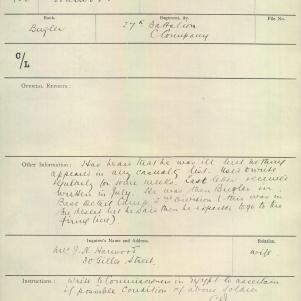 Rank. Regiment, &c. File No.
Bugler 27th Battalion
C Company
C/L
OFFICIAL REPORTS:
Other Information: Has heard that he was ill but nothing
appeared in any casualty list. Used to write
regularly for some weeks. Last letter received
written in July. He was then Bugler in
Base Detail Camp, 2nd Division (this was in
the desert but he said then he expected to go to the
firing line)
Inquirer's Name and Address. Relation.
Mrs J. K. Harwood wife
30 Gilles Street
Instructions: Write to Commissioner in Egypt to ascertain
if possible condition of above soldier